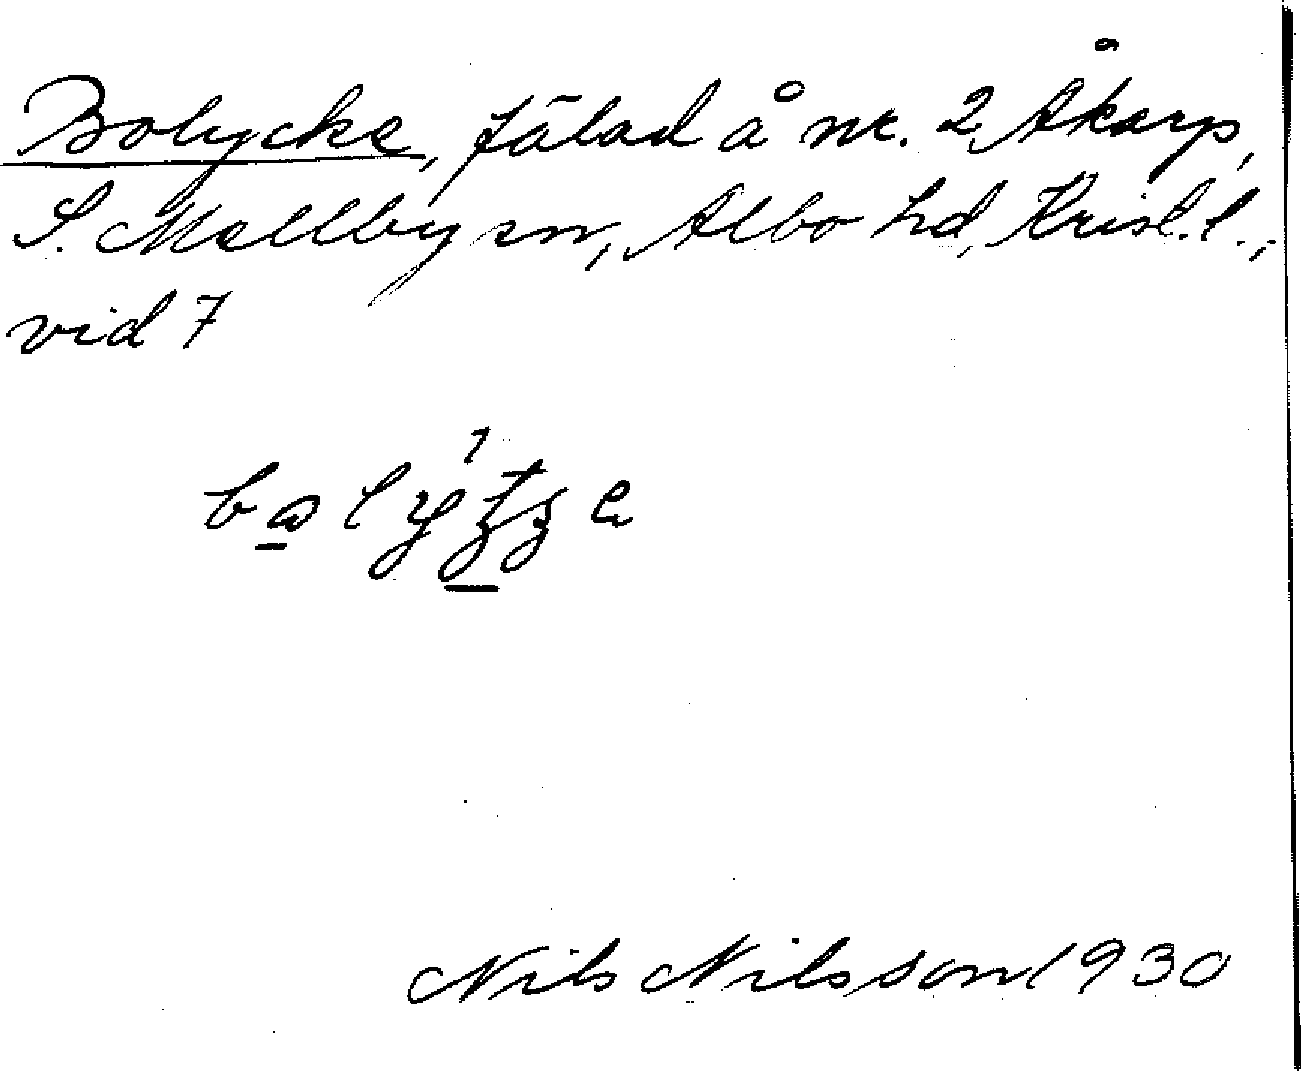 Bolycke, fälad å nr. 2 Åkarp,
S. Mellby sn, Albo hd, Krist. l.,
vid 7
Nils Nilsson 1930